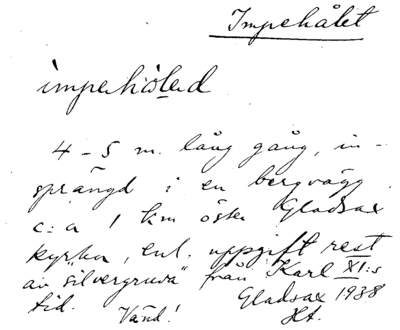 Impehålet
impehòled
4-5 m. lång gång, in-
sprängd i en bergvägg
c:a 1 km öster Gladsax
kyrka, enl. uppgift rest
av "silvergruva" från Karl XI:s
tid. Vänd! Gladsax 1938